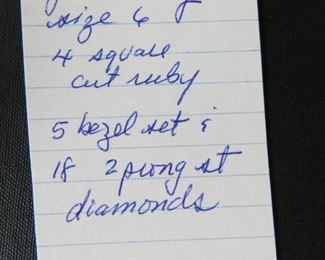 size 6
4 square
cut ruby
5 bezel set &
18 2 prong st
diamonds